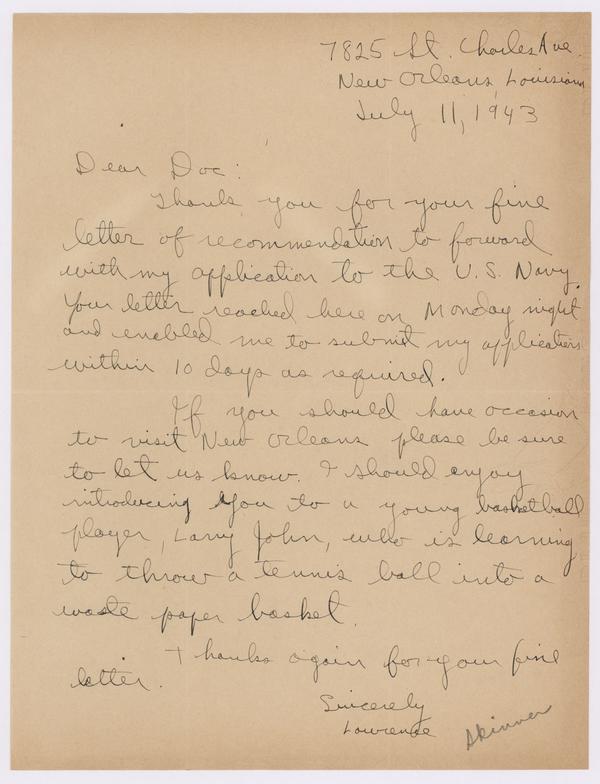 7825 St. Charles Ave.
New Orleans, Louisiana
July 11, 1943
Dear Doc:
Thank you for your fine
letter of recommendation to forward
with my application to the U.S. Navy.
Your letter reached here on Monday night
and enabled me to submit my application
within 10 days as required.
If you should have occasion
to visit New Orleans please be sure
to let us know. I should enjoy
introducing you to a young basketball
player, Larry John, who is learning
to throw a tennis ball into a
waste paper basket.
Thanks again for your fine
letter.
Sincerely
Lawrence
Skinner